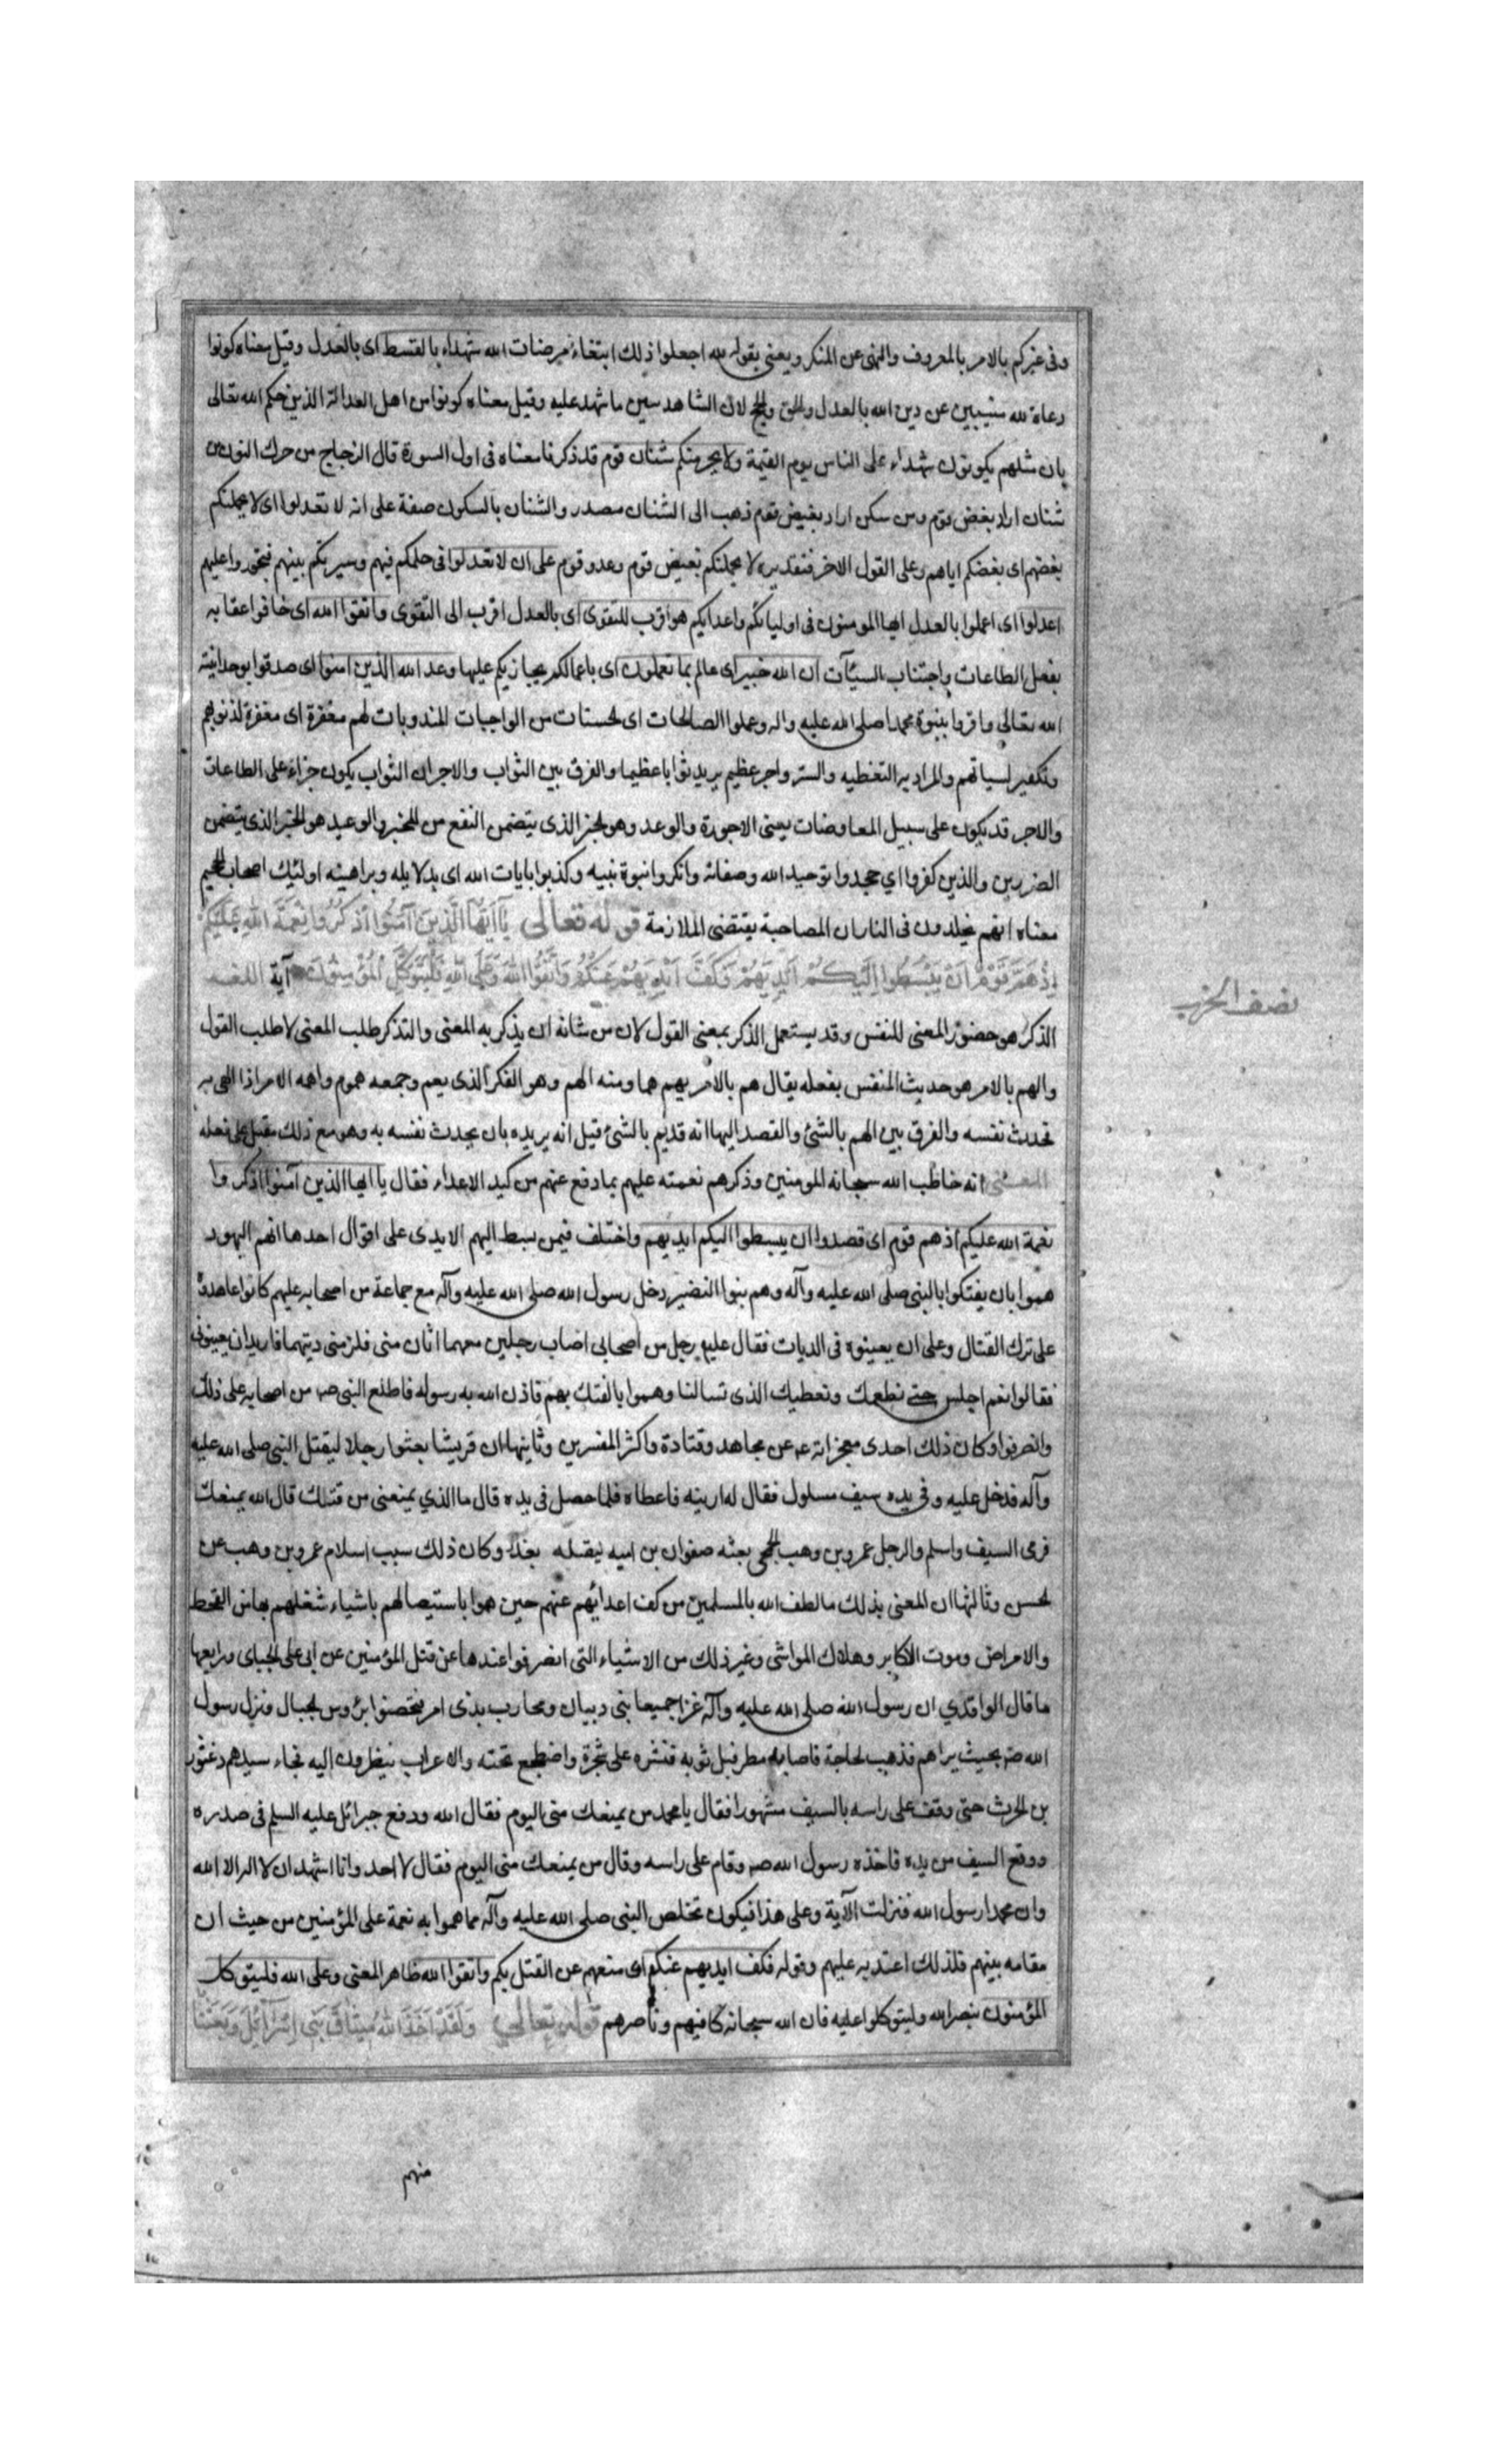 وفى غيركم بالامر بالمعروف والنهى عن المنكر ويعنى بقوله لله اجعلوا ذلك ابتغاء مرضات الله شهداء بالقسط اى بالعدل وقيل معناه كونوا
دعاة لله مبيبين عن دين الله بالعدل والحق والحج لان الشاهد مبين ما شهد عليه وقيل معناه كونوا من اهل العدالة الذين حكم الله تعالى
بان مثلهم يكونون شهداء على الناس يوم القيمة ولا يجرمنكم شنان قوم قد ذكرنا معناه فى اول السورة قال الزجاج من حرك النون من
شنان اراد بغض قوم ومن سكن اراد بغيض قوم ذهب الى الشنان مصدر والشنان بالسكون صفة على انه لا تعدلوا اى لا يحملنكم
بغضهم اى بغضكم اياهم وعلى القول الاخر فتقديره لا يحملنكم بغيض قوم وعدو قوم على ان لا تعدلوا فى حكمكم فيهم وسيرتكم بينهم فتجوروا عليهم
اعدلوا اى اعملوا بالعدل ايها المومنون فى اوليائكم واعدائكم هو اقرب للتقوى اى بالعدل اقرب الى التقوى واتقوا الله اى خافوا عقابه
بفعل الطاعات واجتناب السيّآت ان الله خبير اى عالم بما تعملون اى باعمالكم يجازيكم عليها وعد الله الذين امنوا اى صدقوا بوحدانيته
الله تعالى واقروا بنبوة محمد صلى الله عليه واله وعملوا الصالحات اى الحسنات من الواجبات المندوبات لهم مغفرة اى مغفرة لذنوبهم
وتكفير لسياتهم والمراد به التغطيه والستر واجر عظيم يريد ثوابا عظيما والفرق بين الثواب والاجر ان الثواب يكون جزاء على الطاعات
والاجر قد يكون على سبيل المعاوضات يعنى الاجورة والوعد وهو الخبر الذى يتضمن النفع من المخبر والوعيد هو الخبر الذى يتضمن
الضرر من والذين كفروا اي جحدوا توحيد الله وصفاته وانكروا نبوة نبيه وكذبوا بايات الله اى بدلايله وبراهينه اولئك اصحاب الجحيم
معناه انهم يخلدون فى النار لان المصاحبة يقتضى الملازمة قوله تعالى يَآ اَيُّهَا الَّذِينَ آمَنُوا اذْكُرُوا نِعْمَةَ اللهِ عَلَيْكُمْ
اِذْ هَمَّ قَوْمٌ اَنْ يَبْسُطُوا اِلَيْكُمْ اَيْدِيَهُمْ فَكَفَّ اَيْدِيَهُمْ عَنْكُمْ وَاتَّقُوا اللهَ وَعَلَى اللهِ فَلْيَتَوَكَّلِ الْمُؤْمِنُونَ آية اللغه
الذكر هو حضور المعنى للنفس وقد يستعمل الذكر بمعنى القول لان من شانه ان يذكر به المعنى والتذكر طلب المعنى لا طلب القول
والهم بالامر هو حديث النفس بفعله يقال هم بالامر يهم هما ومنه الهم وهو الفكر الذى يعم وجمعه هموم واهمه الامر اذا اعنى به
تحدث نفسه والفرق بين الهم بالشئ والقصد اليها انه قد يهم بالشئ قبل انه يريده بان يحدث نفسه به وهو مع ذلك مقبل على فعله
المعنى انه خاطب الله سبحانه المومنين وذكرهم نعمته عليهم بما دفع عنهم من كيد الاعداء فقال يا ايها الذين آمنوا اذكروا
نعمة الله عليكم اذ هم قوم اى قصدوا ان يبسطوا اليكم ايديهم واختلف فيمن بسط اليهم الايدى على اقوال احدها انهم اليهود
هموا بان يفتكوا بالنبى صلى الله عليه وآله وهم بنوا النضير دخل رسول الله صلى الله عليه وآله مع جماعة من اصحابه عليهم كانوا عاهدوه
على ترك القتال وعلى ان يعينوه فى الديات فقال عليه رجل من اصحابى اصاب رجلين معهما اثان منى فلزمنى ديتهما فاريد ان يعينونى
فقالوا نعم اجلس حتى نطعمك ونعطيك الذى تسالنا وهموا بالفتك بهم فاذن الله به رسوله فاطلع النبى صم من اصحابه على ذلك
وانصرفوا وكان ذلك احدى معجزاته عم عن مجاهد وقتادة واكثر المفسرين وثانيها ان قريشا بعثوا رجلا ليقتل النبى صلى الله عليه
وآله فدخل عليه وفى يده سيف مسلول فقال له ارينه فاعطاه فلما حصل فى يده قال ما الذي يمنعنى من قتلك قال الله يمنعك
فرمى السيف واسلم والرجل عمرو بن وهب الجمحى بعثه صفوان بن اميه ليقتله بغدا وكان ذلك سبب اسلام عمرو بن وهب عن
الحسن وثالثها ان المعنى بذلك ما لطف الله بالمسلمين من كف اعدائهم عنهم حين هموا باستيصالهم باشياء شغلهم بها من القحط
والامراض وموت الاكابر وهلاك المواشى وغير ذلك من الاشياء التى انصرفوا عندها عن قتل المؤمنين عن ابى على الجباى ورابعها
ما قال الواقدي ان رسول الله صلى الله عليه وآله غزا جميعا بنى دبيان ومحارب بذى امر فتحصنوا برؤوس الجبال ونزل رسول
الله صم بحيث يراهم فذهب لحاجة فاصابه مطر فبل ثوبه فنشره على شجرة واضطجع تحته والاعراب ينظرون اليه فجاء سيدهم دعثور
بن الحرث حتى وقف على راسه بالسيف مشهورا فقال يا محمد من يمنعك منى اليوم فقال الله ودفع جبرائل عليه السلم فى صدره
ووقع السيف من يده فاخذه رسول الله صم وقام على راسه وقال من يمنعك منى اليوم فقال لا احد وانا اشهد ان لا اله الا الله
وان محمدا رسول الله فنزلت الآية وعلى هذا فيكون تخلص النبى صلى الله عليه وآله مما هموا به نعمة على المؤمنين من حيث ان
مقامه بينهم فلذلك اعتد به عليهم وقوله فكف ايديهم عنكم اى منعهم عن القتل بكم واتقوا الله ظاهر المعنى وعلى الله فليتوكل
المؤمنون بنصر الله وليتوكلوا عليه فان الله سبحانه كافيهم وناصرهم قوله تعالى وَلَقَدْ اَخَذَ اللهُ مِيثَاقَ بَنِى اِسْرَآئِلَ وَبَعَثْنَا
نصف الحزب
منهم